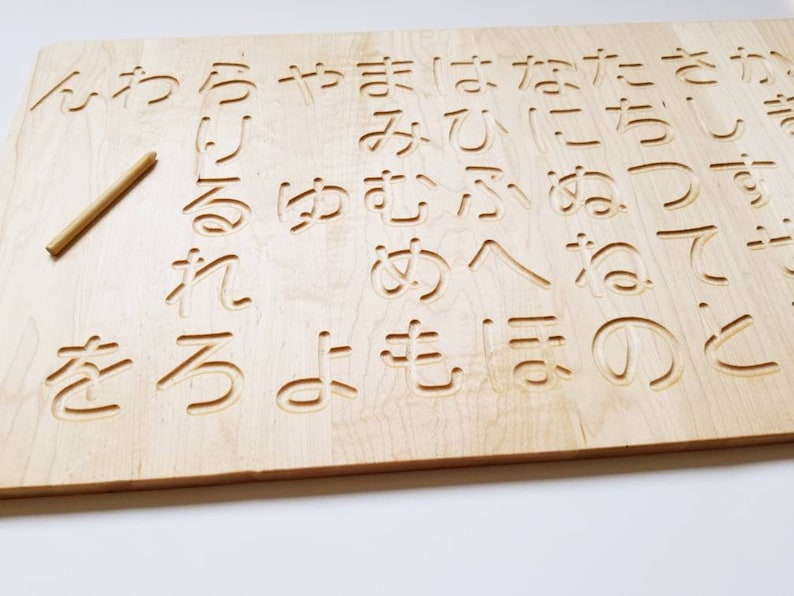 か
さしす
たちつてと
なにぬねの
はひふへほ
まみむめも
やゆよ
らりるれろ
わを
ん